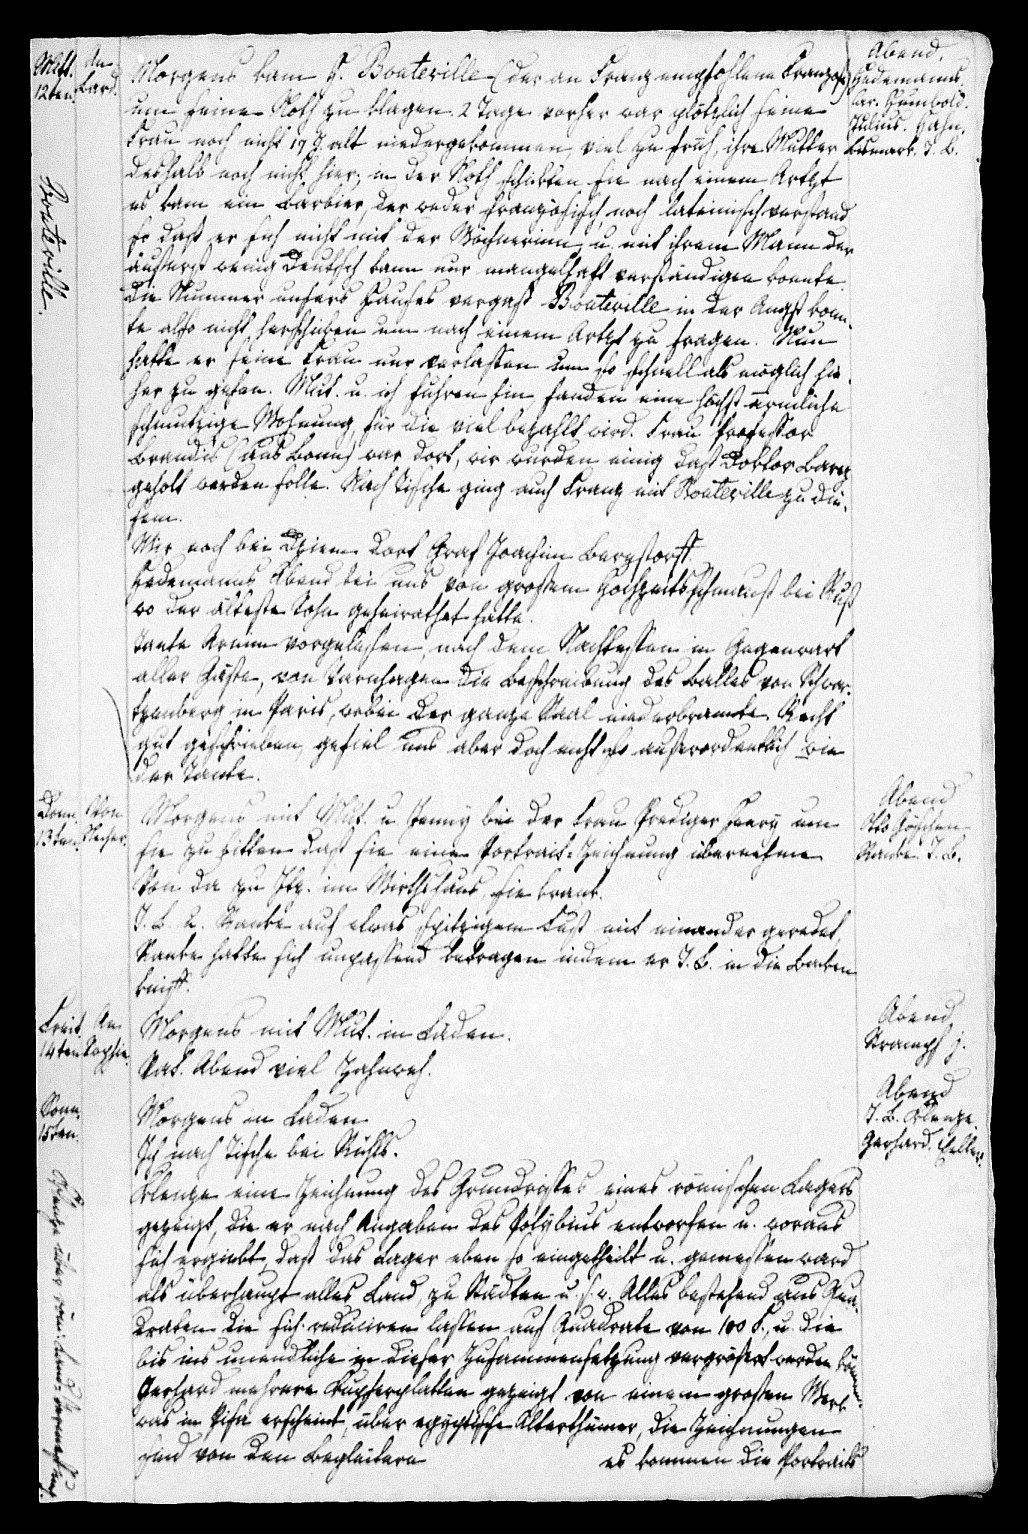 Mitt.
12ten
An
Bard.
Bouteville.
Morgens kam H. Bouteville (der an Franz empfohlene Franzose)
um seine Noth zu klagen. 2 Tage vorher war plötzlich seine
Frau noch nicht 17 J. alt niedergekommen, viel zu früh, ihre Mutter
deshalb noch nicht hier; in der Noth schickten sie nach einem Artzt
es kam ein Barbier, der weder französisch, noch lateinisch verstand
so daß er sich nicht mit der Wöchnerinn, u. mit ihrem Mann der
äußerst wenig Deutsch kann nur mangelhaft verständigen konnte.
Die Nummer unsers Hauses vergaß Bouteville in der Angst konn-
te also nicht herschicken um nach einem Artzt zu fragen. Nun
hatte er seine Frau nur verlassen um so schnell als möglich hie-
her zu gehen. Mut. u. ich fuhren hin fanden eine höchst ärmliche
schmutzige Wohnung für die viel bezahlt wird. Frau Professor
Brandis (aus Bonn) war dort, wir wurden einig daß Doktor Barez
geholt werden solle. Nach Tische ging auch Franz mit Bouteville zu die-
sem.
Wir noch bei Thiem. Dort Graf Joachim Bernstorff.
Hedemanns Abend bei uns von großem Hochzeitsschmauß bei Ruß
wo der älteste Sohn geheirathet hatte.
Tante Arnim vorgelesen, nach dem Nachtessen in Gegenwart
aller Gäste, von Varnhagen die Beschreibung des Balles von Schwar-
tzenberg in Paris, wobei der ganze Saal niederbrannte. Recht
gut geschrieben, gefiel uns aber doch nicht so außerordentlich wie
der Tante.
Abend.
Hedemanns.
Car. Humbold.
Julius. Hahn.
Bismark. J. B.
Donn.
13ten
Von
Morgens mit Mut. u. Jenny bei der Frau Prediger Henry um
sie zu bitten daß sie eine Portrait-Zeichnung übernehme
Von da zu Itz. im Wirthshaus, sie krank.
J. B. u. Ranke auf etwas spitzigem Fuß mit einander geredet,
Ranke hatte sich unpassend betragen indem er J. B. in die Backen
kniff.
Abend
Otto Göschen
Ranke. J. B.
Freit.
14ten
An
Sophie.
Morgens mit Mut. in Laden.
Vat. Abend viel Zahnweh.
Abend
Strampf j.
Sonn.
15ten
Morgens in Laden
Ich nach Tische bei Rühls.
Klenze eine Zeichnung des Grundrisses eines römischen Lagers
gezeigt, die er nach Angaben des Polybius entworfen u. woraus
sich ergiebt, daß das Lager eben so eingetheilt u. gemessen ward
als überhaupt alles Land, zu Städten u. s. w. Alles bestehend aus Qua-
draten die sich reduciren lassen auf Quadrate von 100 F., u. die
bis ins unendliche in dieser Zusammensetzung vergrößert werden können.
Gerhard mehrere Kupferplatten gezeigt von einem großen Werk
was in Pisa erscheint, über egyptische Alterthümer, die Zeichnungen
sind von den Begleitern es kommen die Portraits
Abend
J. B. Klenze.
Gerhard.
Klenze über röm. Land-Vermessung.